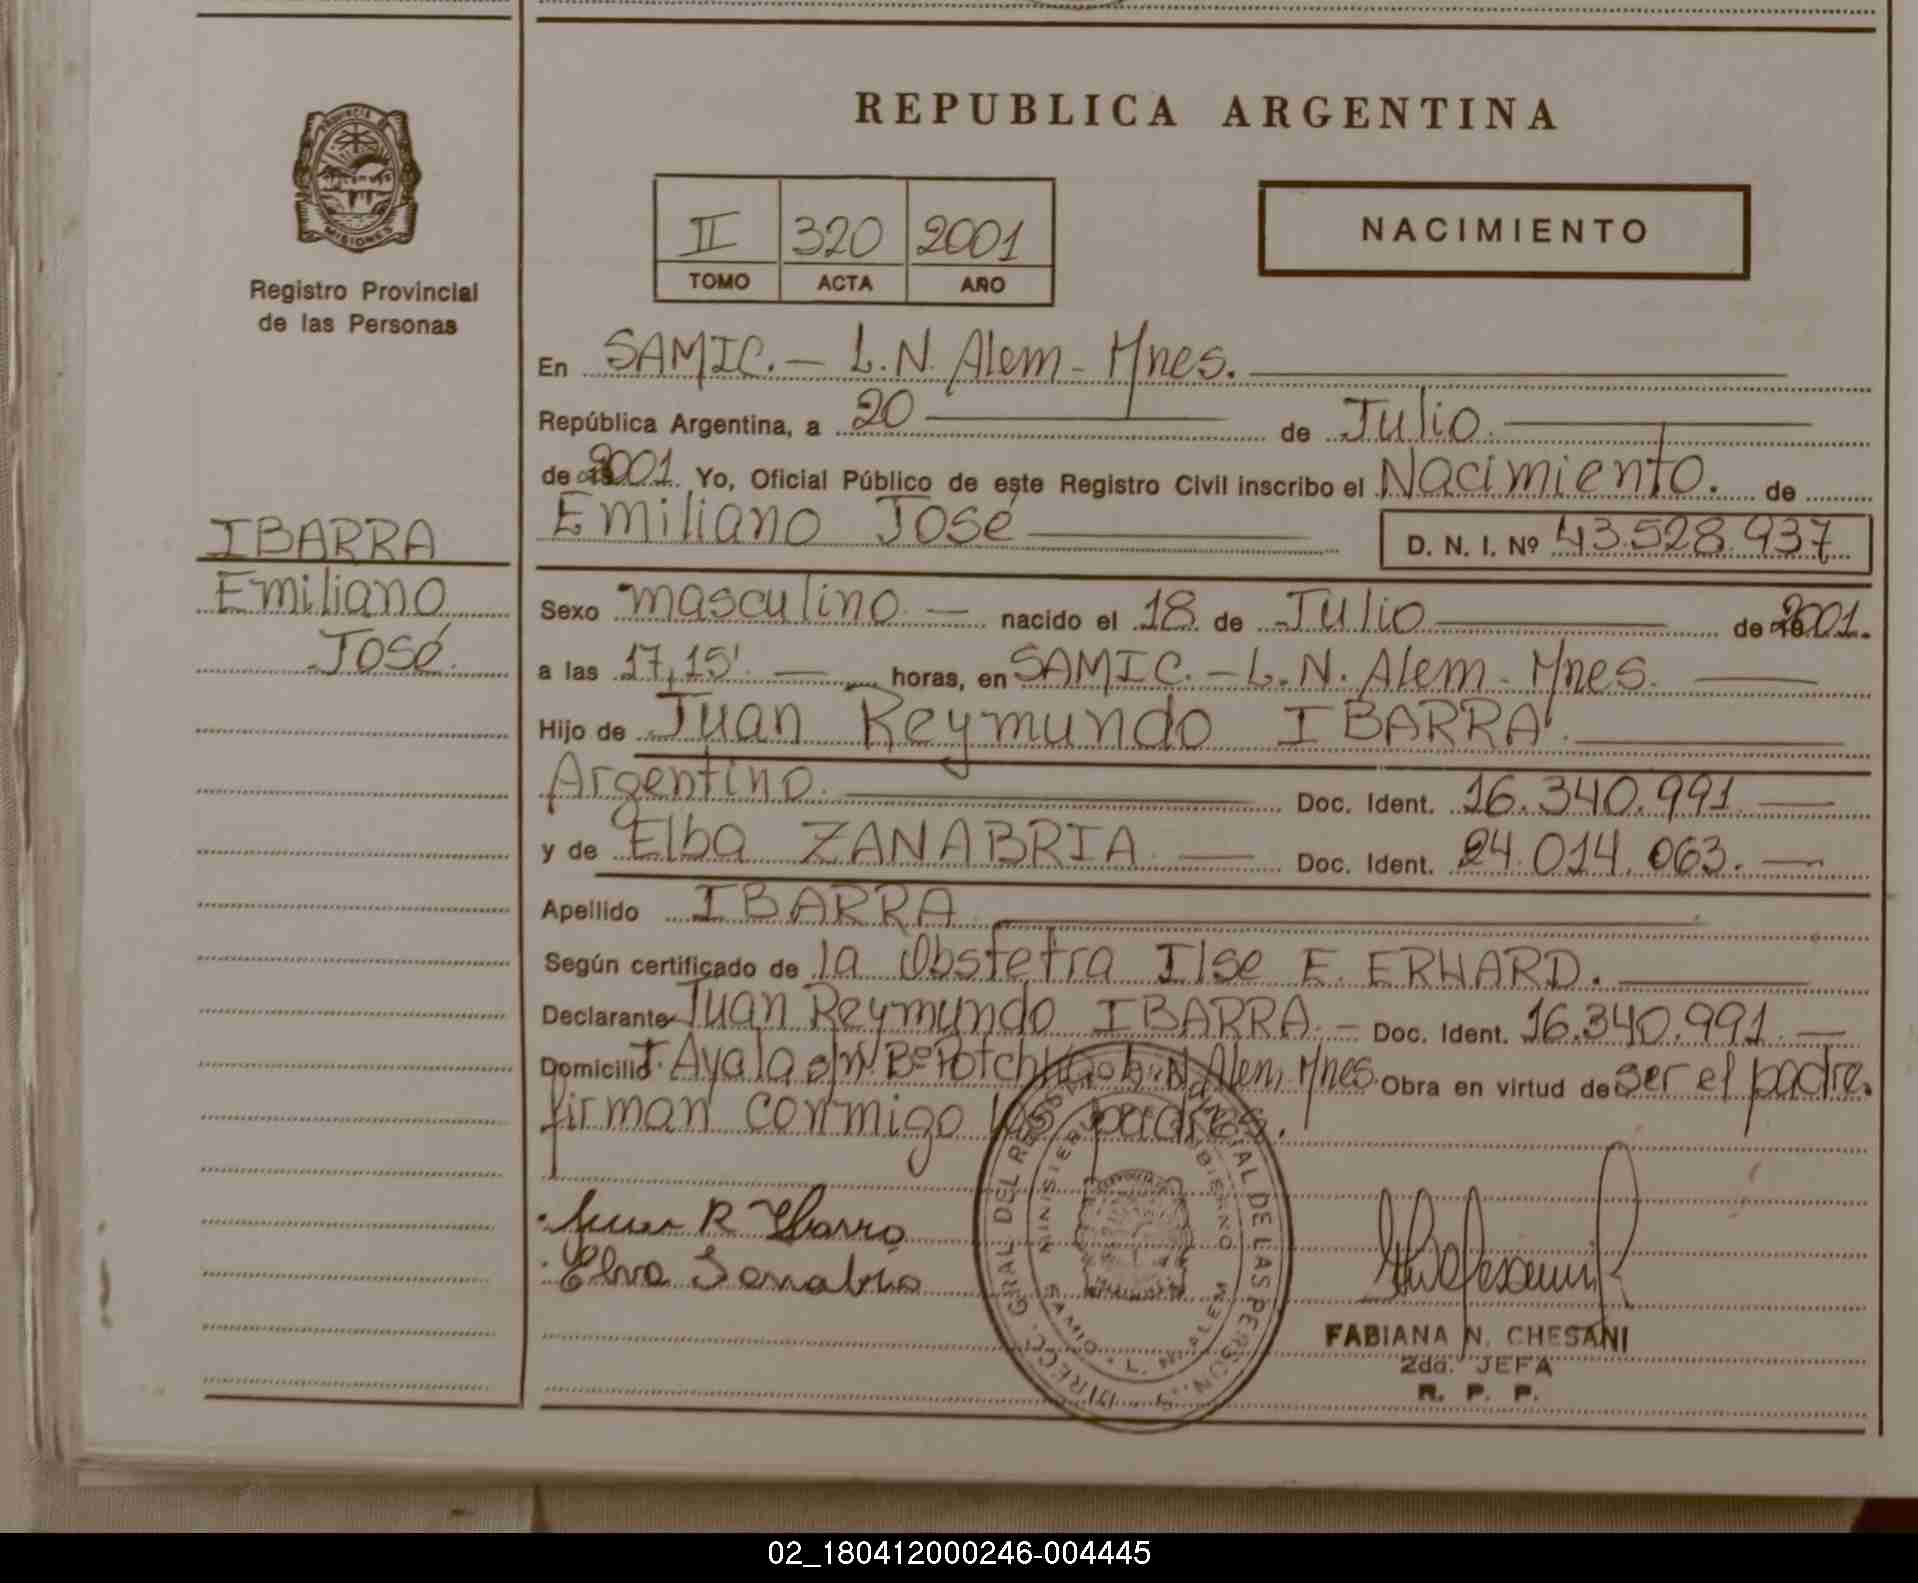 REPUBLICA ARGENTINA
PROVINCIA DE
MISIONES
Registro Provincial
de las Personas
II 320 2001
TOMO ACTA AÑO
NACIMIENTO
En SAMIC. - L. N. Alem - Mnes.
República Argentina, a 20 de Julio
de 2001. Yo, Oficial Público de este Registro Civil inscribo el Nacimiento. de
Emiliano José
D. N. I. Nº 43.528.937
IBARRA
Emiliano
José.
Sexo masculino - nacido el 18 de Julio de 2001.
a las 17,15' horas, en SAMIC. - L. N. Alem - Mnes.
Hijo de Juan Reymundo IBARRA.
Argentino. Doc. Ident. 16.340.991
y de Elba ZANABRIA Doc. Ident. 24.014.063.
Apellido IBARRA
Según certificado de la Obstetra Ilse E. ERHARD.
Declarante Juan Reymundo IBARRA. - Doc. Ident. 16.340.991
Domicilio T. Ayala s/n Bº L. N. Alem. Mnes. Obra en virtud de ser el padre.
firman conmigo los padres.
Juan R Ibarra
Elva Sanabria
DIRECC. GRAL DEL DE LAS PERSONAS
MINISTERIO GOBIERNO
SAMIC. L. N. ALEM
FABIANA N. CHESANI
2da. JEFA
R. P. P.
02_180412000246-004445